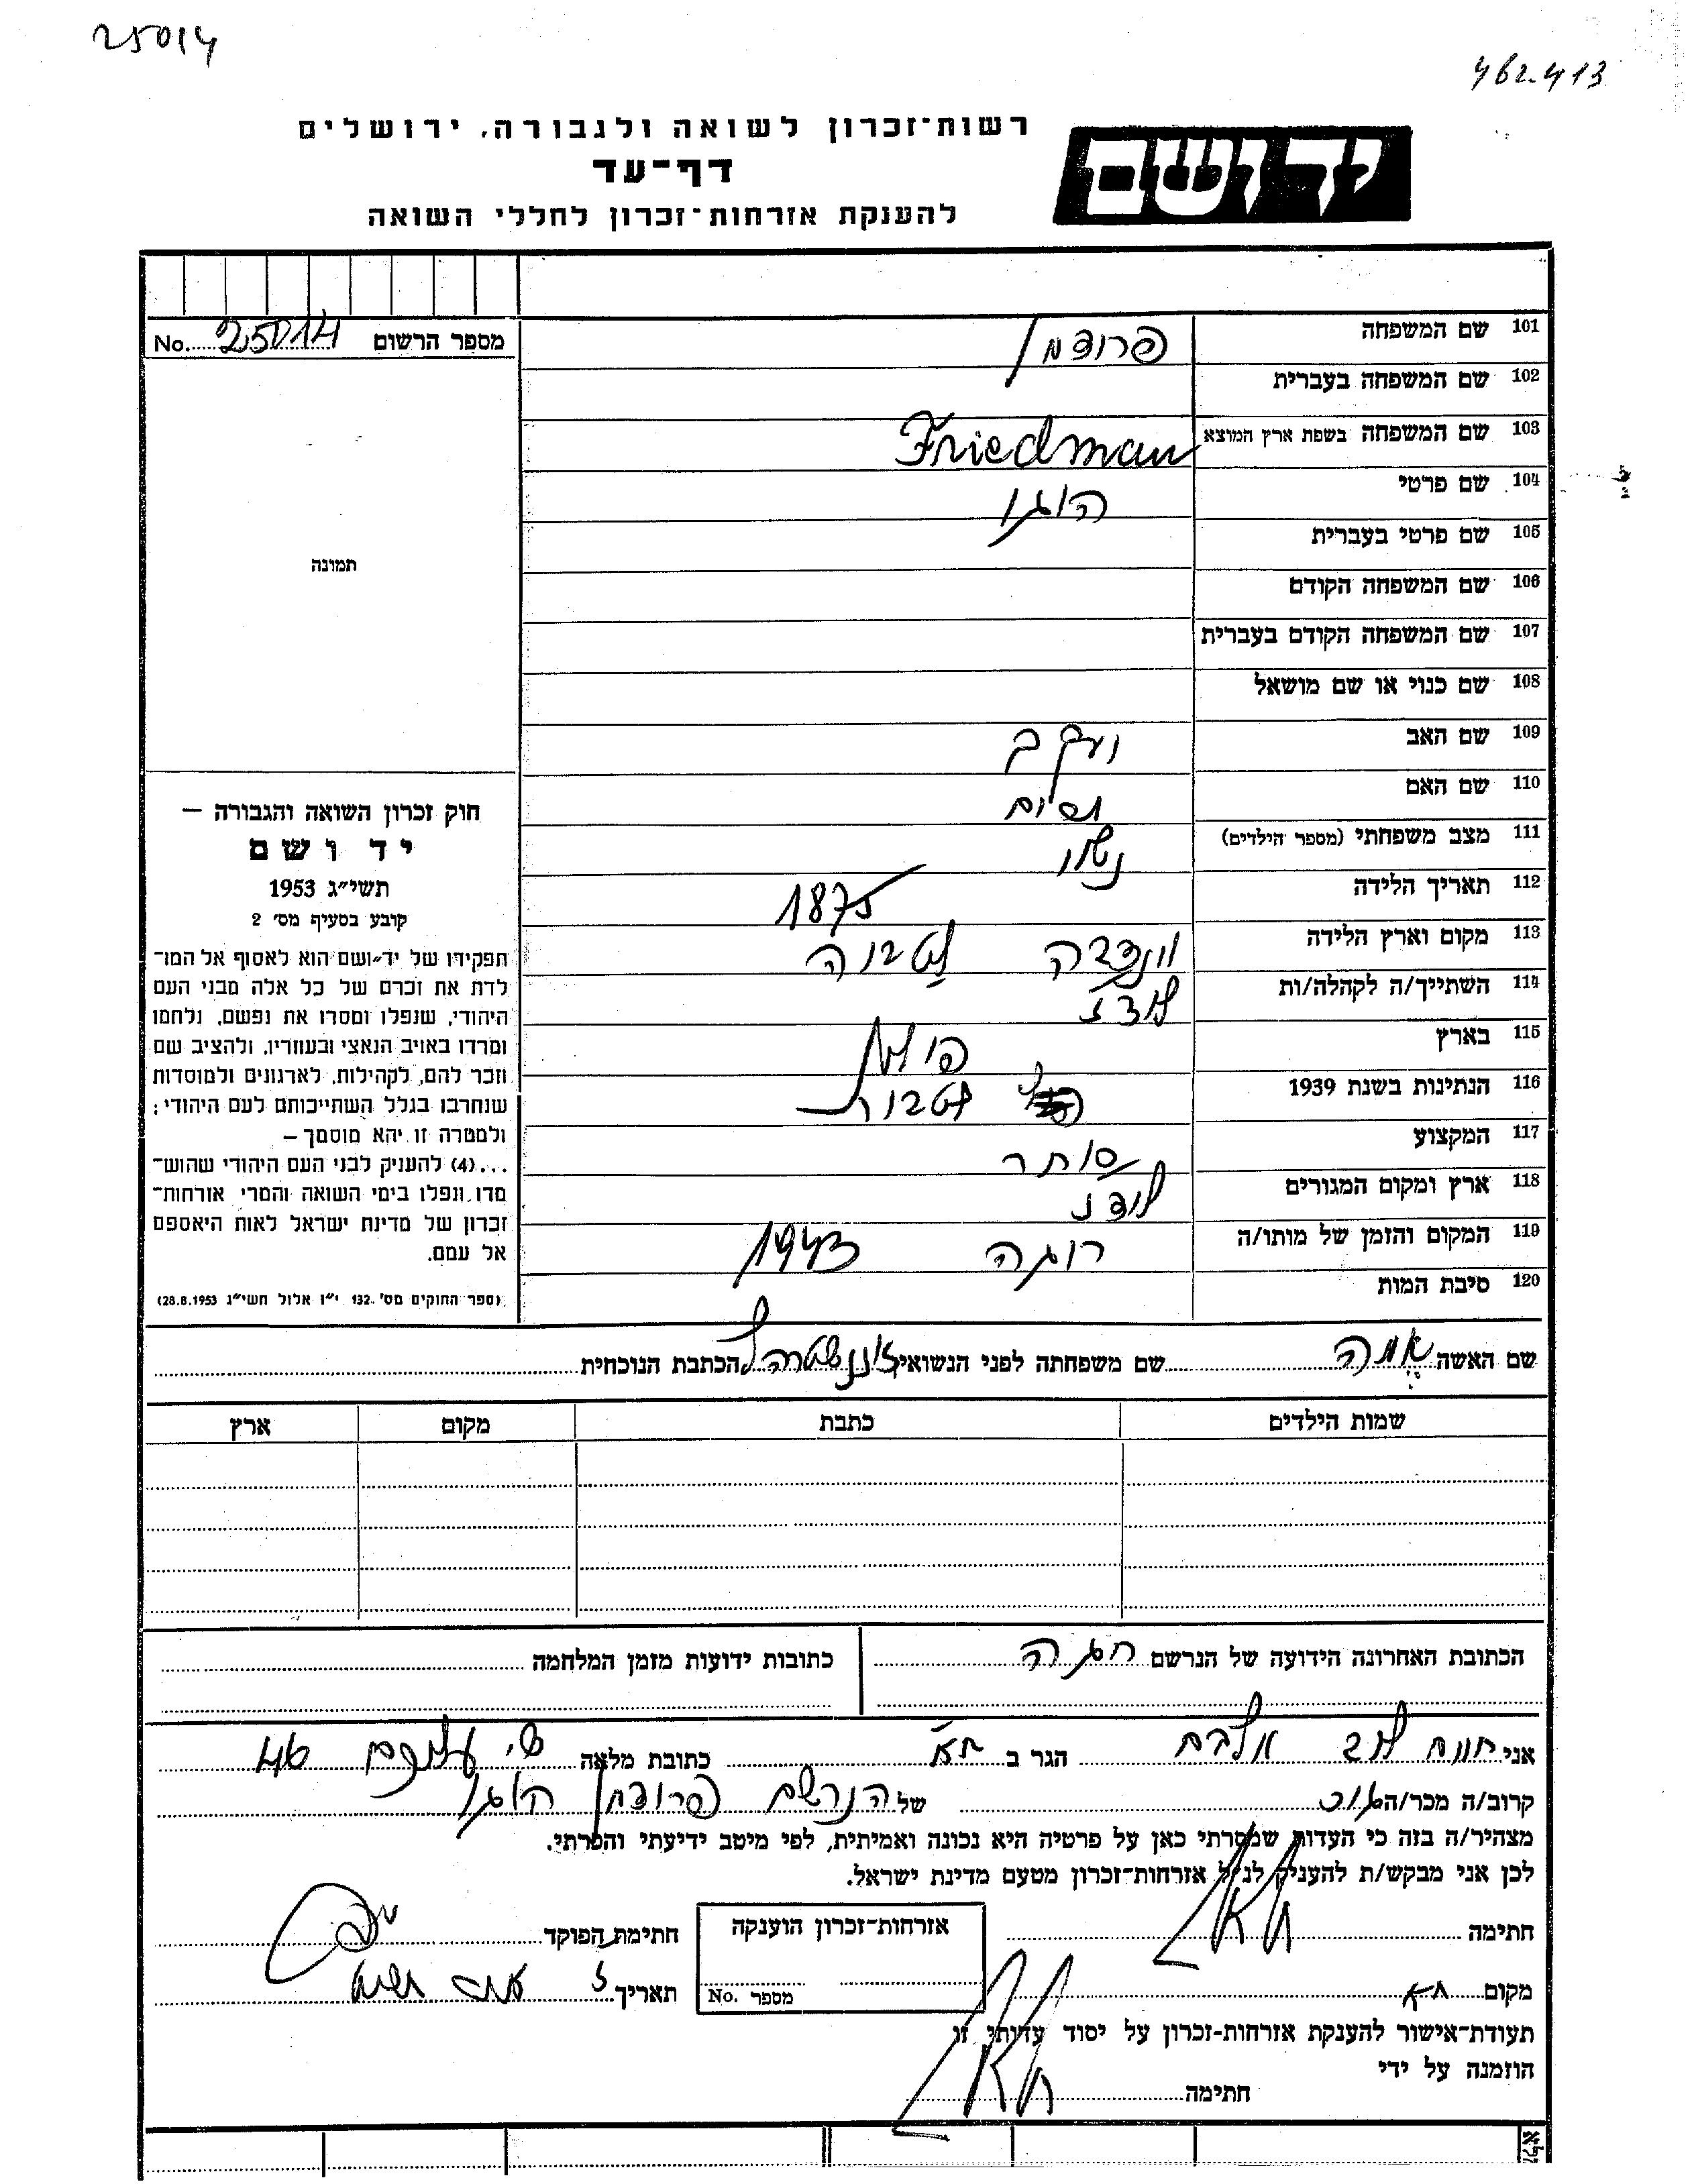 25014
462.413
רשות־זכרון לשואה ולגבורה, ירושלים
דף־עד
להענקת אזרחות־זכרון לחללי השואה
יד ושם
מספר הרשום 25014 No.
101 שם המשפחה פרידמן
102 שם המשפחה בעברית
103 שם המשפחה בשפת ארץ המוצא Friedman
104 שם פרטי הוגו
105 שם פרטי בעברית
106 שם המשפחה הקודם
107 שם המשפחה הקודם בעברית
108 שם כנוי או שם מושאל
109 שם האב יעקב
110 שם האם
111 מצב משפחתי (מספר הילדים) נשוי
112 תאריך הלידה 1875
113 מקום וארץ הלידה לטביה
114 השתייך/ה לקהלה/ות לודז
115 בארץ פולין
116 הנתינות בשנת 1939 לטבית
117 המקצוע סוחר
118 ארץ ומקום המגורים לודז
119 המקום והזמן של מותו/ה ריגה 1943
120 סיבת המות
תמונה
חוק זכרון השואה והגבורה –
יד ושם
תשי״ג 1953
קובע בסעיף מס׳ 2
תפקידו של יד־ושם הוא לאסוף אל המו־
לדת את זכרם של כל אלה מבני העם
היהודי, שנפלו ומסרו את נפשם, נלחמו
ומרדו באויב הנאצי ובעוזריו, ולהציב שם
וזכר להם, לקהילות, לארגונים ולמוסדות
שנחרבו בגלל השתייכותם לעם היהודי;
ולמטרה זו יהא מוסמך –
...(4) להעניק לבני העם היהודי שהוש־
מדו ונפלו בימי השואה והמרי אזרחות־
זכרון של מדינת ישראל לאות היאספם
אל עמם.
(ספר החוקים מס׳ 132, י״ז אלול תשי״ג 28.8.1953)
שם האשה שם משפחתה לפני הנשואין הכתבת הנוכחית
שמות הילדים כתבת מקום ארץ
הכתובת האחרונה הידועה של הנרשם ריגה
כתובות ידועות מזמן המלחמה
אני הגר ב ת״א כתובת מלאה
קרוב/ה מכר/ה של הנרשם פרידמן הוגו
מצהיר/ה בזה כי העדות שמסרתי כאן על פרטיה היא נכונה ואמיתית, לפי מיטב ידיעתי והכרתי.
לכן אני מבקש/ת להעניק לנ״ל אזרחות־זכרון מטעם מדינת ישראל.
חתימה
אזרחות־זכרון הוענקה
מספר No.
חתימת הפוקד
מקום ת״א
תאריך
תעודת־אישור להענקת אזרחות־זכרון על יסוד עדותי זו
הוזמנה על ידי
חתימה